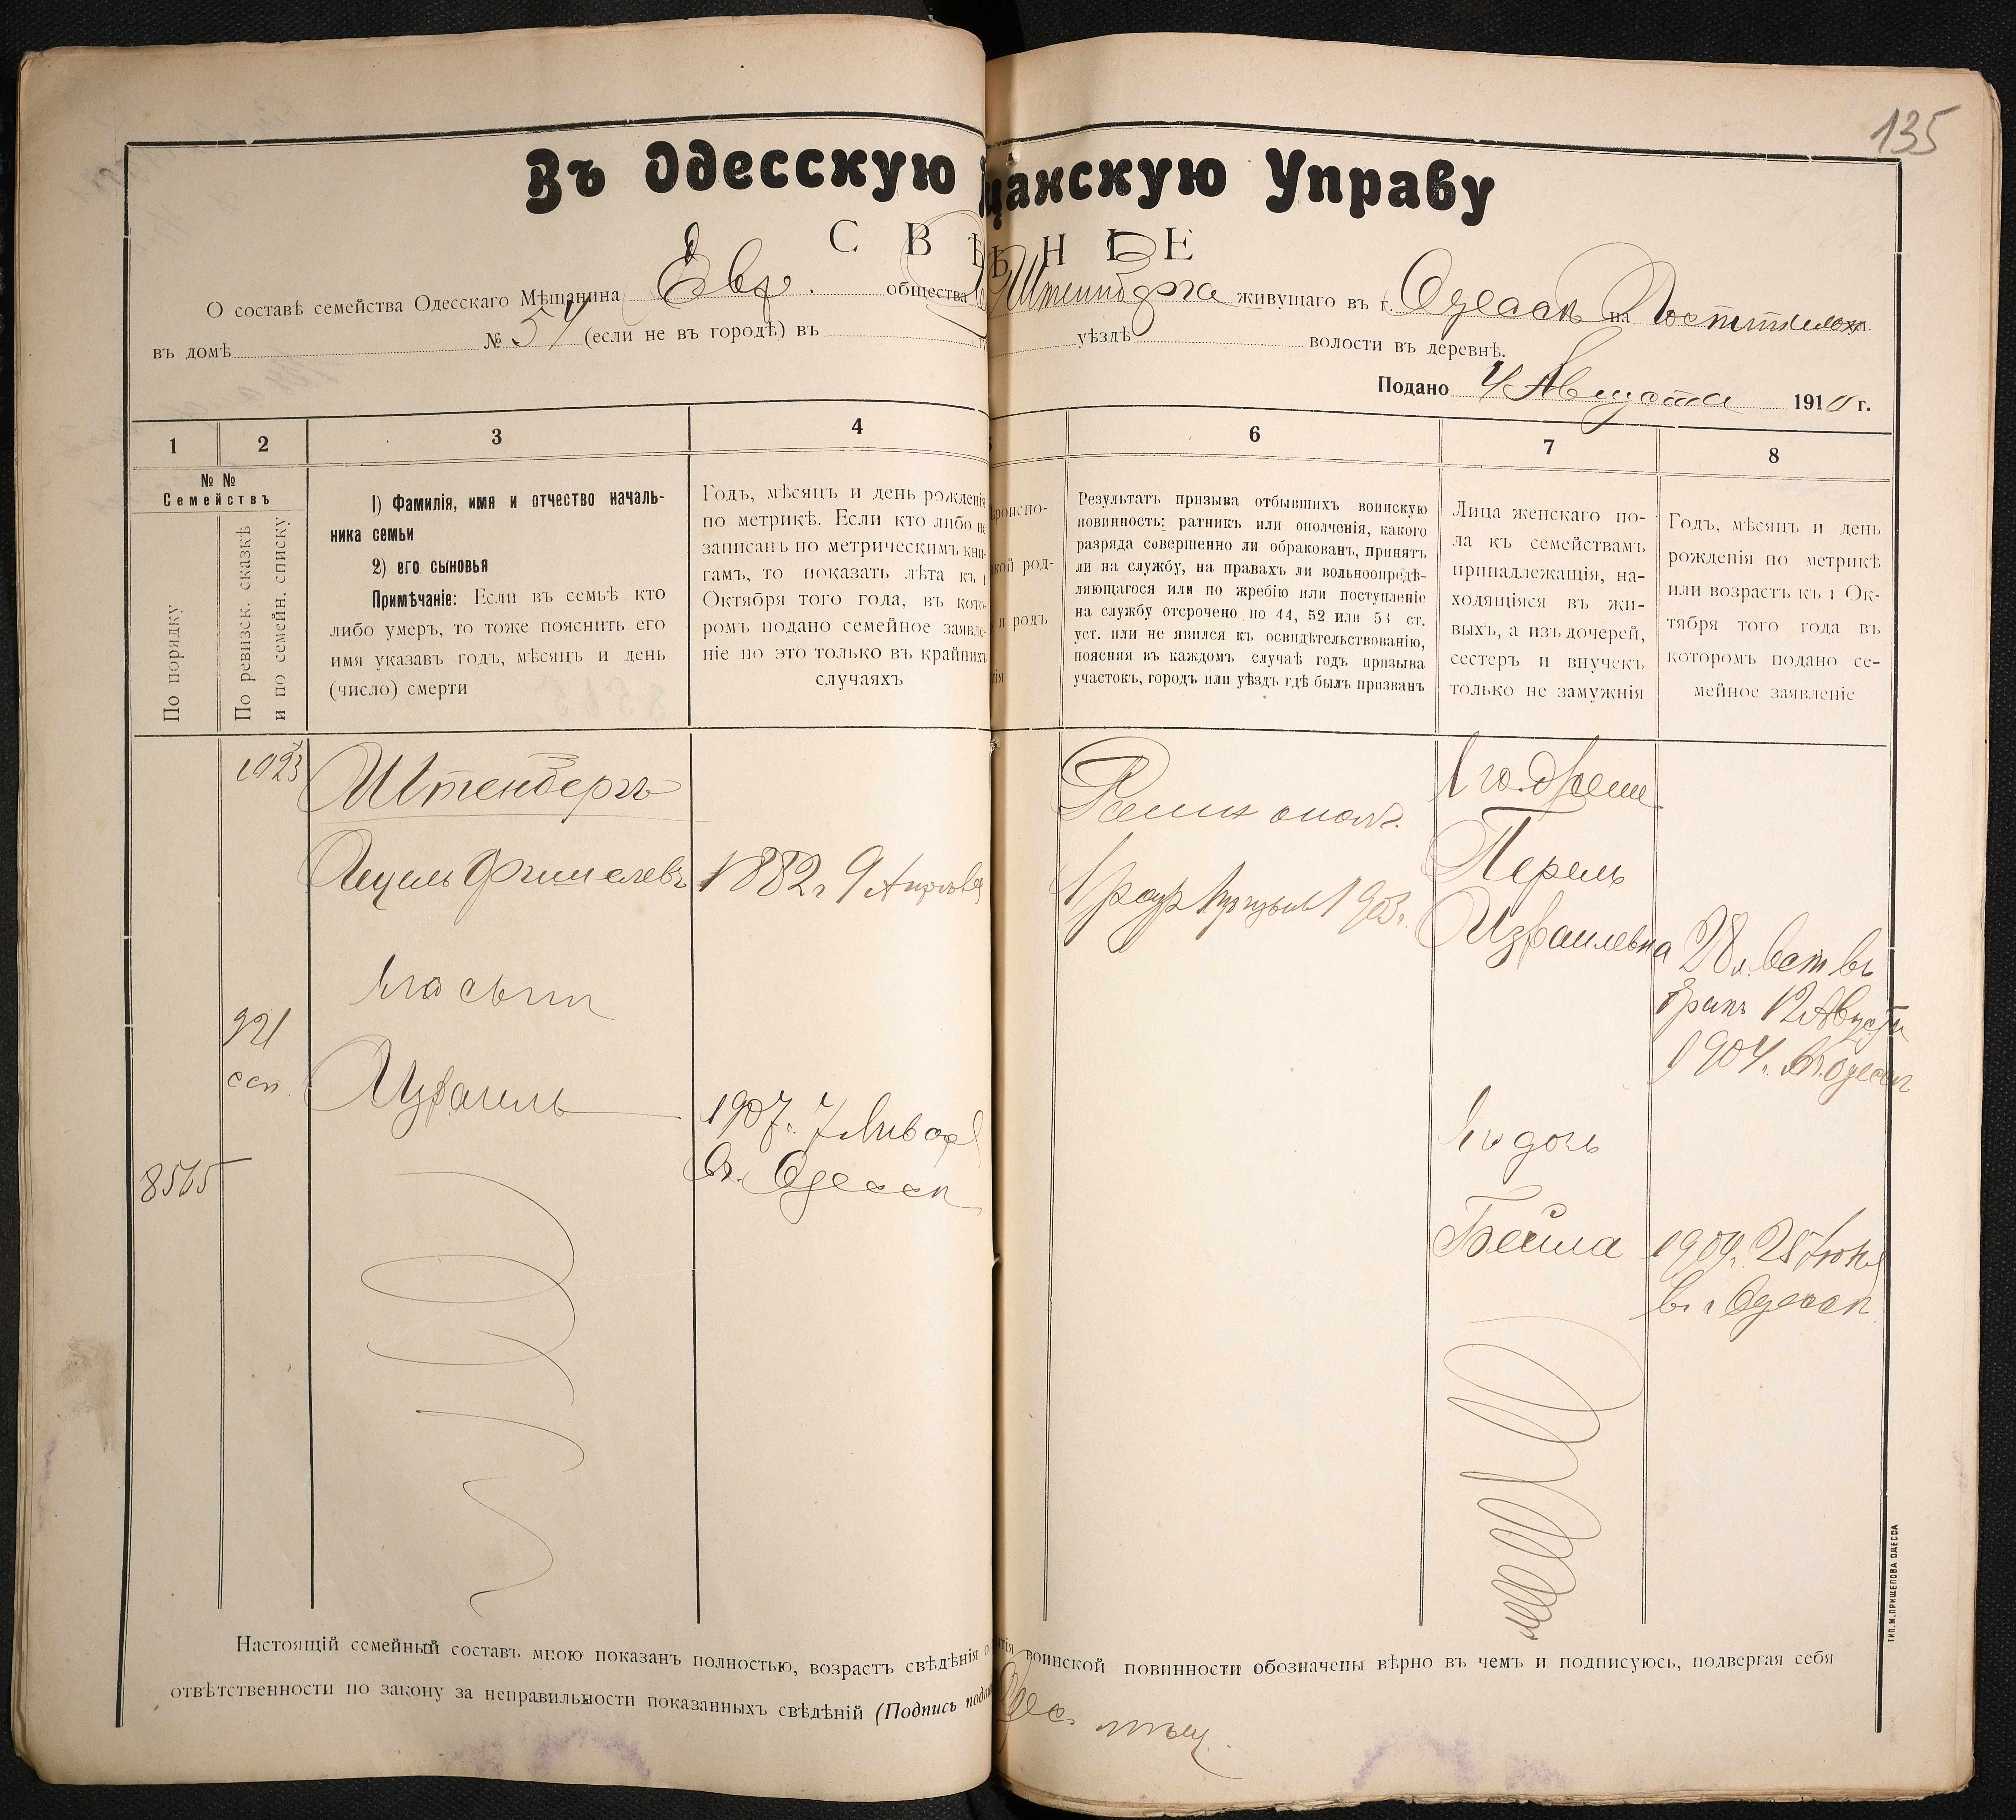 135
Въ Одесскую щанскую Управу
С В Ѣ Н І Е
О составѣ семейства Одесскаго Мѣщанина Евр. общества Штенберга живущаго въ г. Одессѣ на
въ домѣ № 54 (если не въ городѣ) въ уѣздѣ волости въ деревнѣ.
Подано 4 Августа 1910 г.
1 2 3 4 6 7 8
№ №
Семействъ
По порядку
По ревизск. сказкѣ
и по семейн. списку
1) Фамилія, имя и отчество началь-
ника семьи
2) его сыновья
Примѣчаніе: Если въ семьѣ кто
либо умеръ, то тоже пояснить его
имя указавъ годъ, мѣсяцъ и день
(число) смерти
Годъ, мѣсяцъ и день рожденія
по метрикѣ. Если кто либо не
записанъ по метрическимъ кни-
гамъ, то показать лѣта къ 1
Октября того года, въ кото-
ромъ подано семейное заявле-
ніе но это только въ крайнихъ
случаяхъ
роиспо-
кой род-
и родъ
тія
Результатъ призыва отбывшихъ воинскую
повинность: ратникъ или ополченія, какого
разряда совершенно ли обракованъ, принятъ
ли на службу, на правахъ ли вольноопредѣ-
ляющагося или по жребію или поступленіе
на службу отсрочено по 44, 52 или 53 ст.
уст. или не явился къ освидѣтельствованію,
поясняя въ каждомъ случаѣ годъ призыва
участокъ, городъ или уѣздъ гдѣ былъ призванъ
Лица женскаго по-
ла къ семействамъ
принадлежащія, на-
ходящіяся въ жи-
выхъ, а изъ дочерей,
сестеръ и внучекъ
только не замужнія
Годъ, мѣсяцъ и день
рожденія по метрикѣ
или возрастъ къ 1 Ок-
тября того года въ
которомъ подано се-
мейное заявленіе
1923
Штенбергъ
Фишелевъ 1882 г. 9 Апрѣля
его сынъ
921
сен
Израиль
1907 г. 7 Января
въ г. Одессѣ
8565
ополч.
1 разр призыва 1903 г.
Его жена
Перель
Израилевна
28 л. вст въ
бракъ 12 Августа
1904 г. въ г. Одессѣ
Его дочь
Бейла
1909 г. 25 Іюня
въ г. Одессѣ
Настоящій семейный составъ мною показанъ полностью, возрастъ свѣдѣнія о тія воинской повинности обозначены вѣрно въ чемъ и подписуюсь, подвергая себя
отвѣтственности по закону за неправильности показанныхъ свѣдѣній (Подпись пода
Одес. мѣщ.
ТИП. М. ПРИЩЕПОВА ОДЕССА